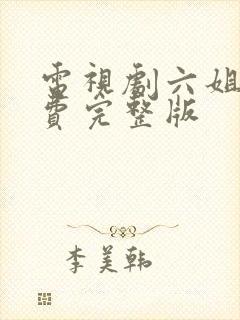 電視劇六姐
費完整版
李美韩